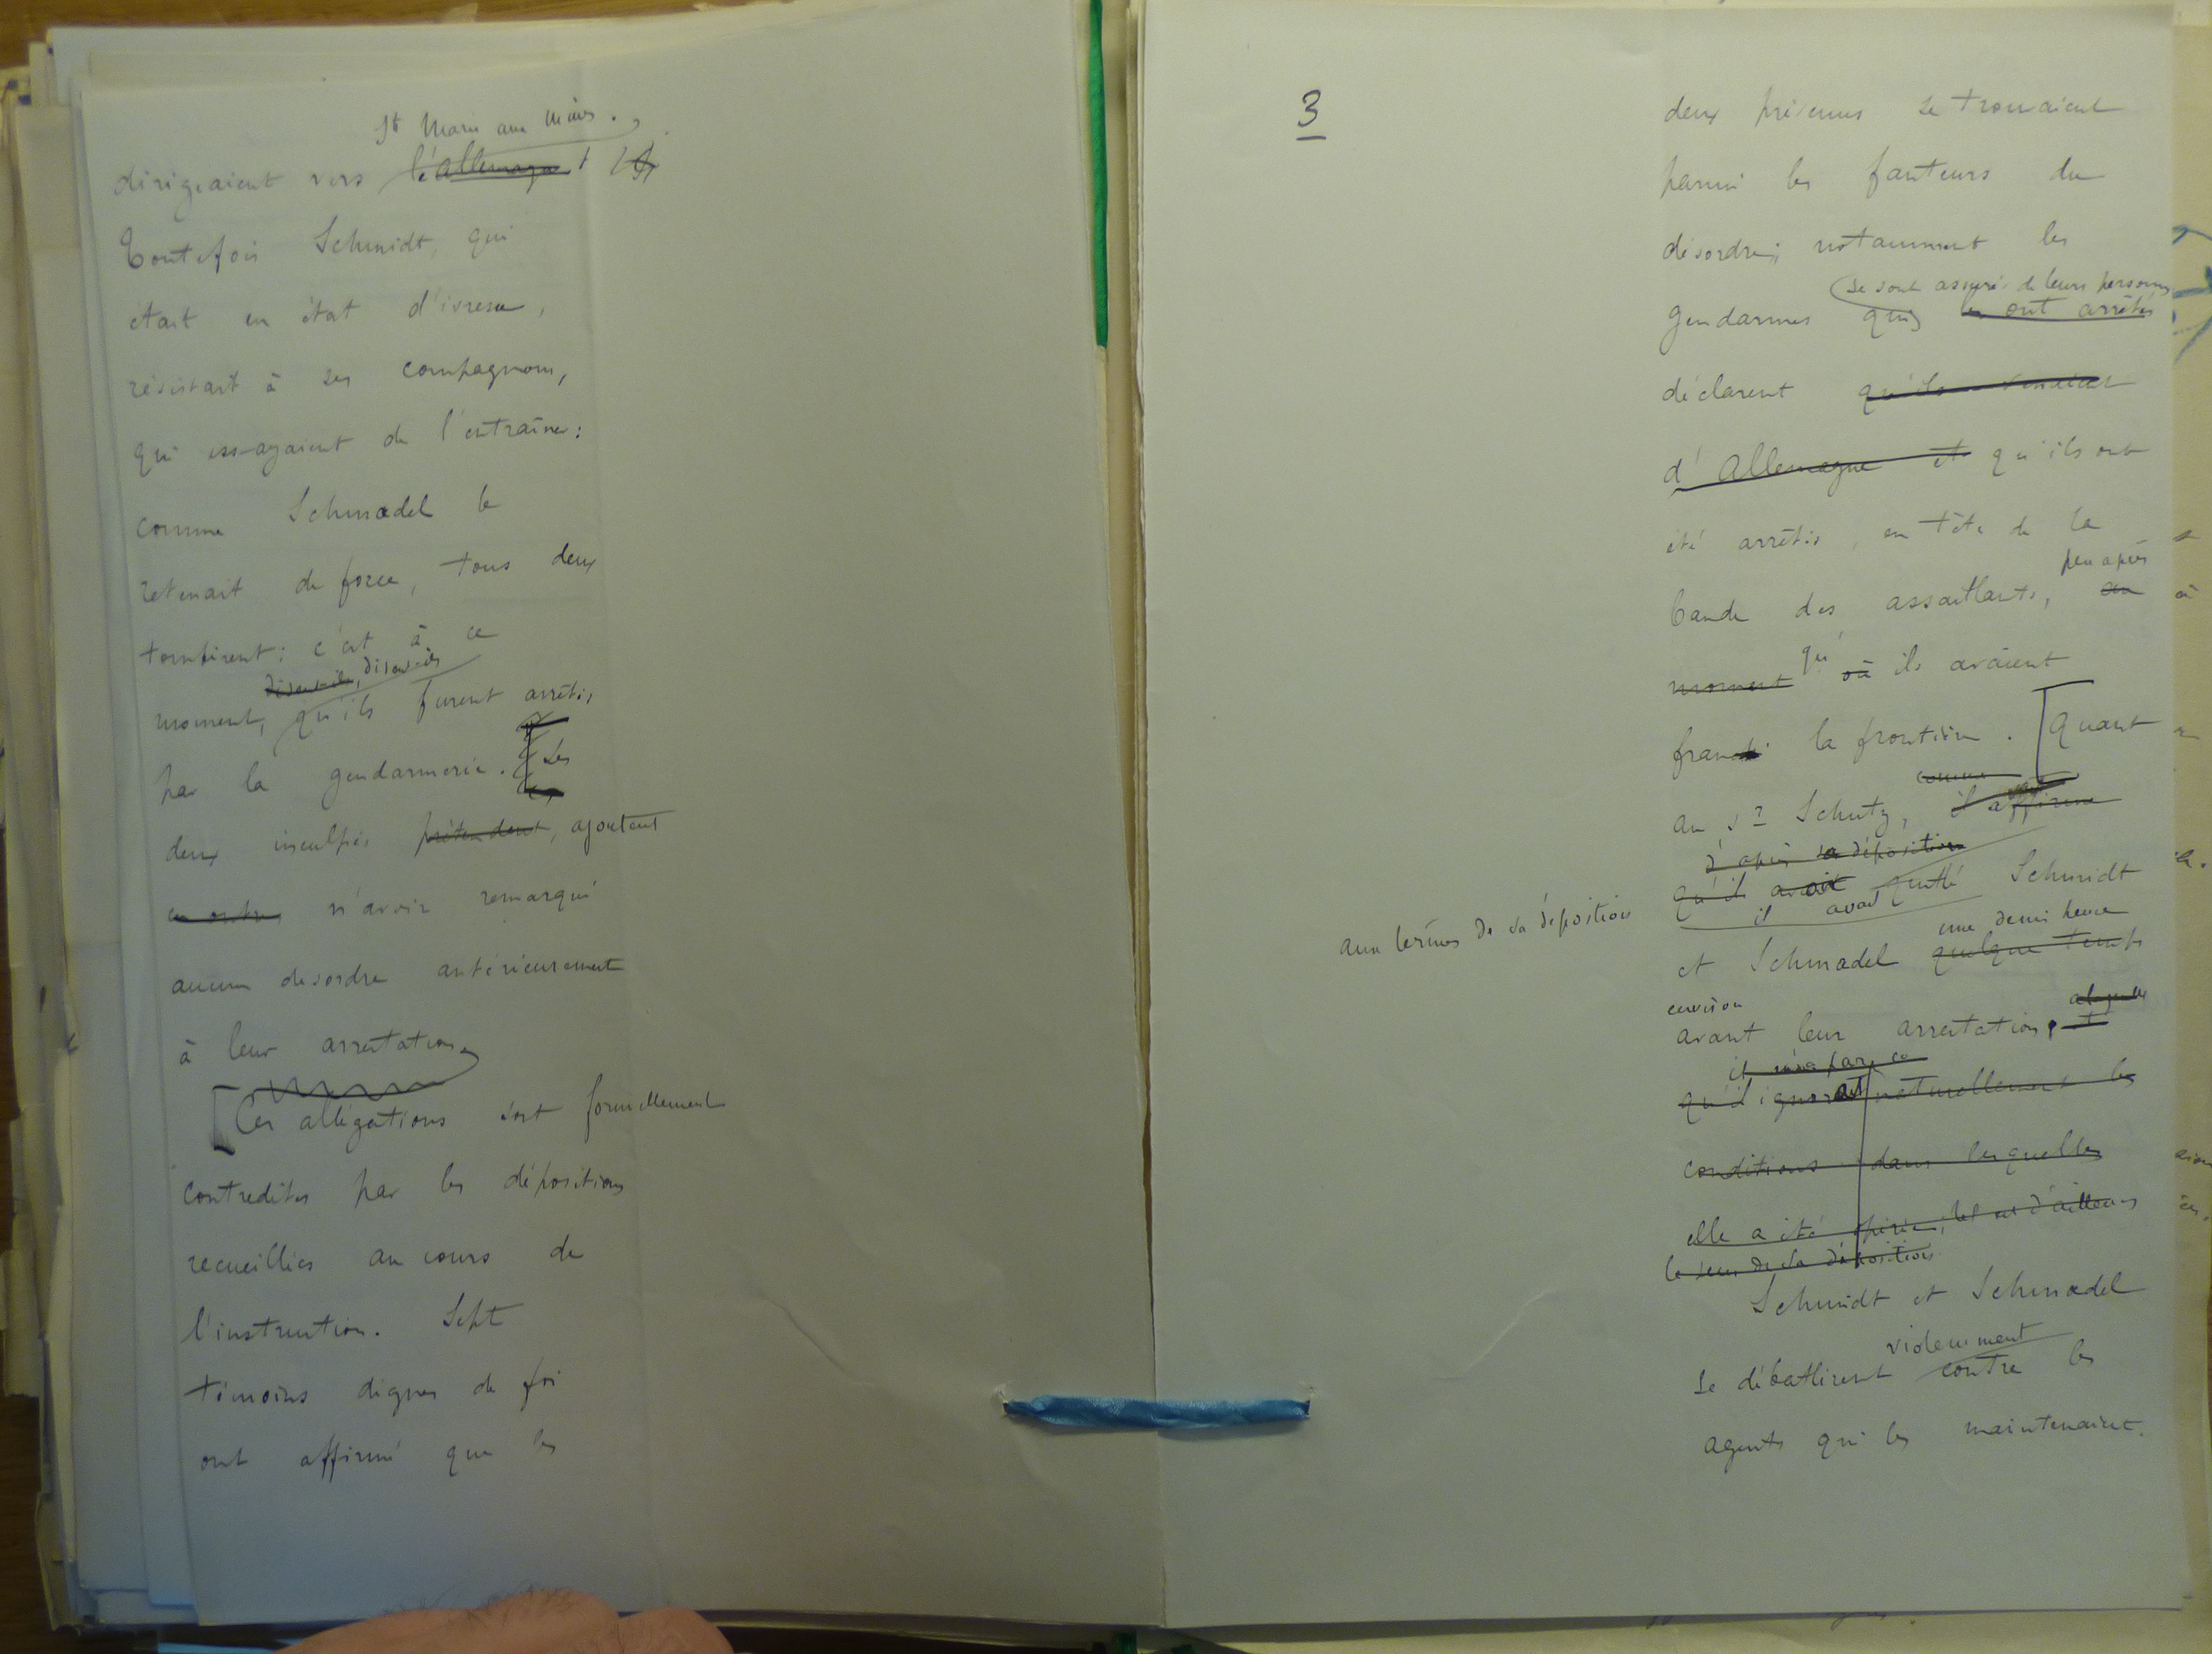 Ste Marie aux Mines.
dirigeaient vers l'Allemagne
Toutefois Schmidt, qui
était en état d'ivresse,
résistait à ses compagnons,
qui essayaient de l'entraîner:
comme Schmadel le
retenait de force, tous deux
tombèrent: c'est à ce
disent-ils, disent-ils
moment, qu'ils furent arrêtés
par la gendarmerie. Les
deux inculpés prétendent, ajoutent
en outre n'avoir remarqué
aucun désordre antérieurement
à leur arrestation
Ces allégations sont formellement
contredites par les dépositions
recueillies au cours de
l'instruction. Sept
témoins dignes de foi
ont affirmé que les
3
deux prévenus se trouvaient
parmi les fauteurs du
désordre; notamment les
se sont assurés de leurs personnes
gendarmes qui les ont arrêtés
déclarent qu'ils venaient
d'Allemagne et qu'ils ont
été arrêtés, en tête de la
peu après
bande des assaillants, au
moment qu' où ils avaient
franchi la frontière. Quant
comme
au Sr Schutz, il affirme
d'après sa déposition
qu'il avait quitté Schmidt
aux termes de sa déposition
il avait
une demi heure
et Schmadel quelque temps
environ
avant leur arrestation, et
qu'il ignorait naturellement les
conditions dans lesquelles
elle a été opérée; tel est d'ailleurs
le sens de sa déposition
Schmidt et Schmadel
violemment
se débattirent contre les
agents qui les maintenaient.